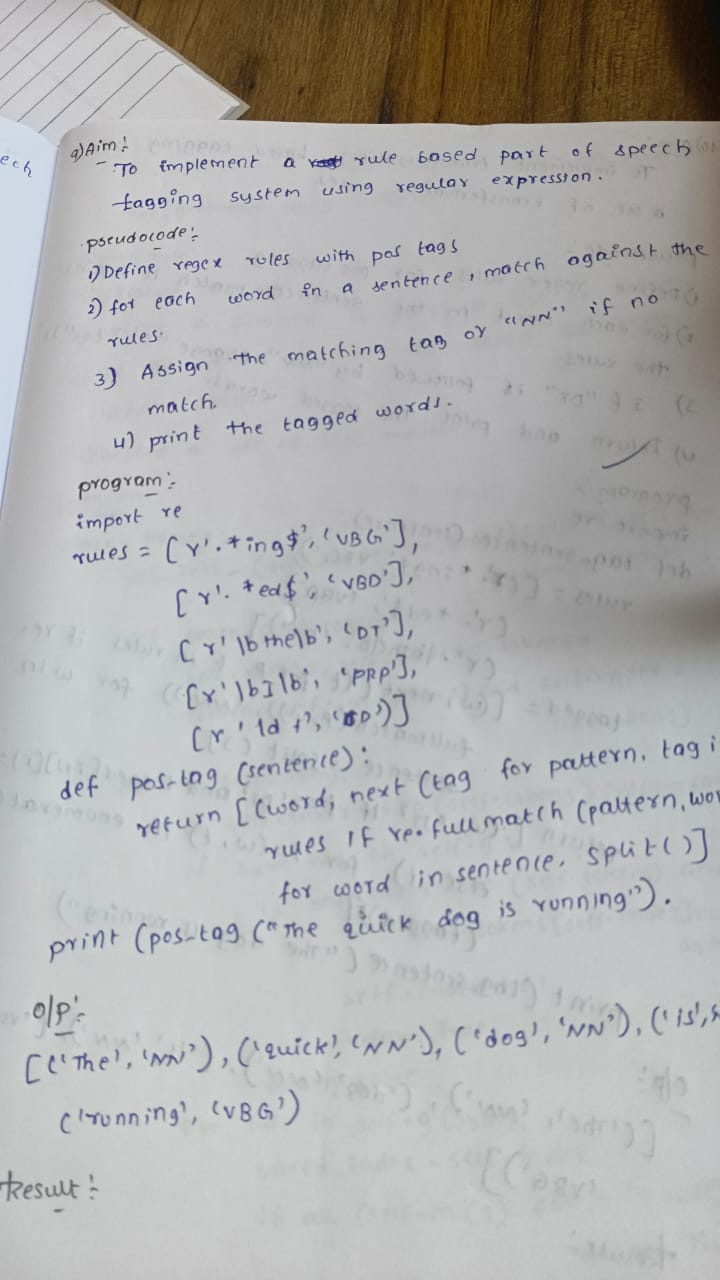 ech
9) Aim:
To implement a rule based part of speech
tagging system using regular expression.
pseudocode:-
1) Define regex rules with pos tags
2) for each word in a sentence, match against the
rules.
3) Assign the matching tag or "NN" if no
match.
4) print the tagged words.
program:-
import re
rules = [r'.*ing$', 'VBG'],
[r'.*ed$', 'VBD'],
[r'\bthe\b', 'DT'],
[r'\bI\b', 'PRP'],
[r'\d+', 'CD')]
def pos-tag (sentence):
return [(word, next (tag for pattern, tag i
rules if re.fullmatch (pattern, wor
for word in sentence. split()]
print (pos-tag ("The quick dog is running").
o/p:-
[('The', 'NN'), ('quick', 'NN'), ('dog', 'NN'), ('is',
('running', 'VBG')
Result:-